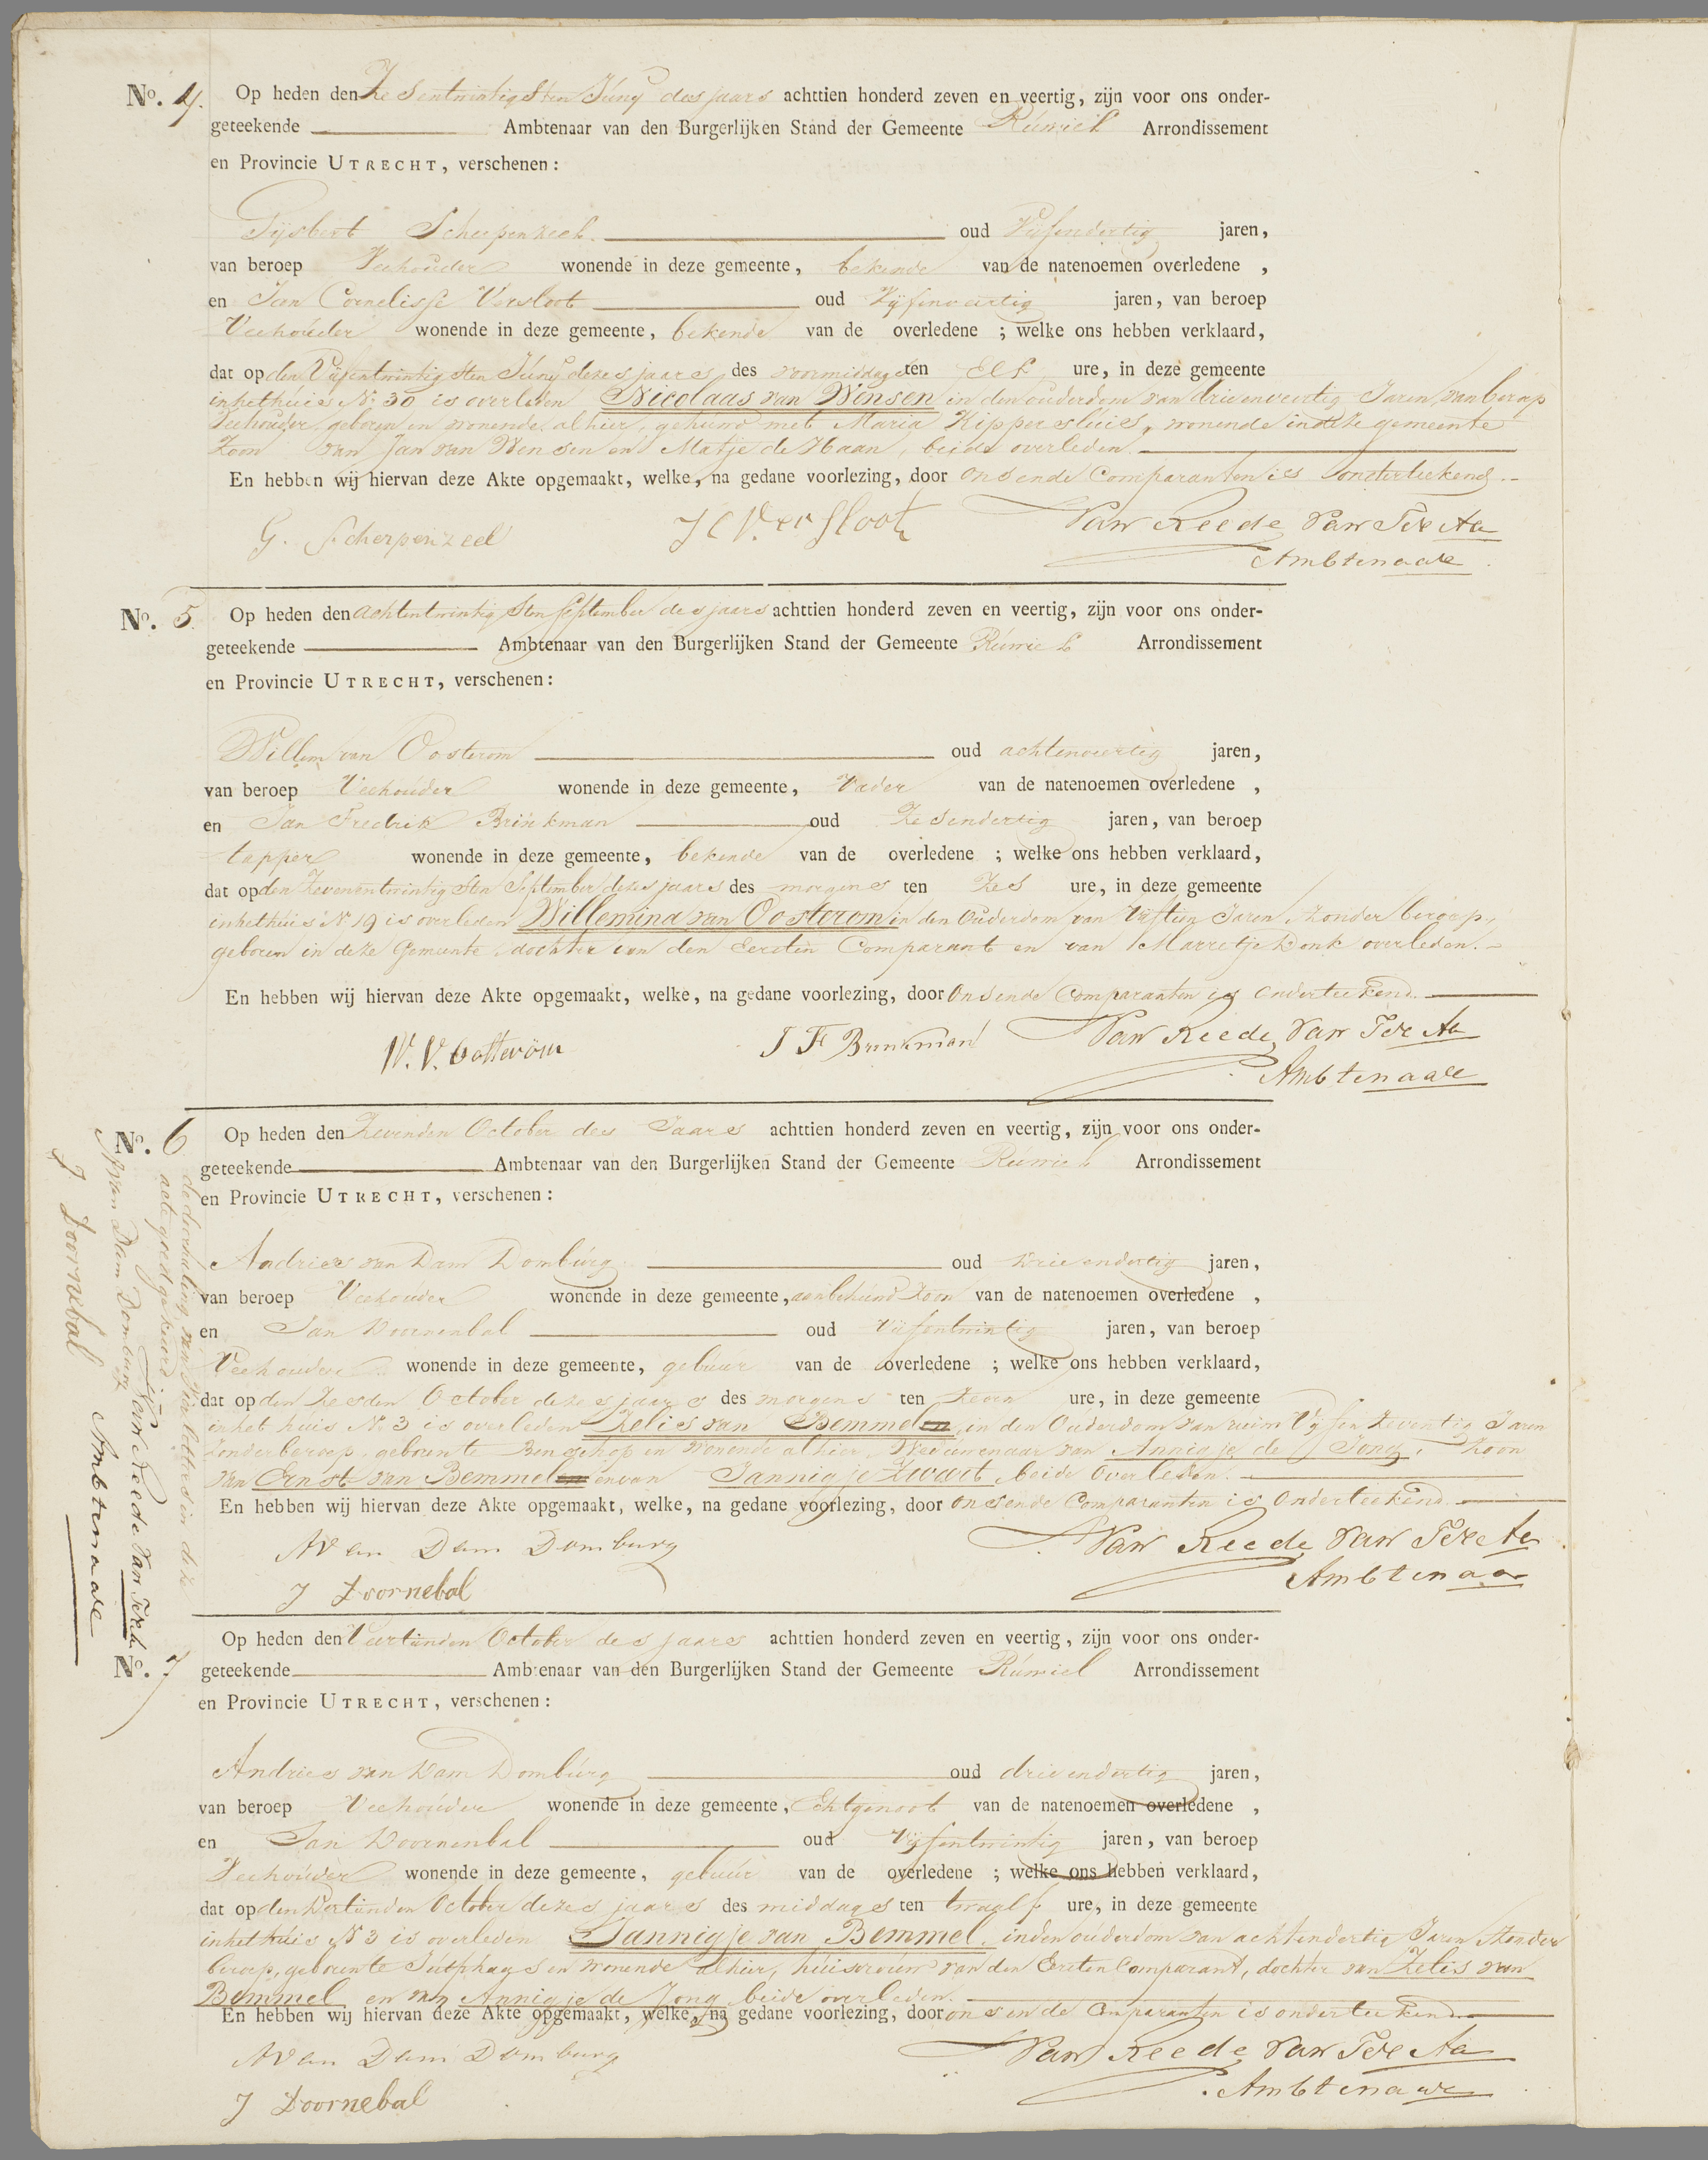 No. 4. Op heden den Zesentwintigsten Juny des jaars achttien honderd zeven en veertig, zijn voor ons onder-
geteekende Ambtenaar van den Burgerlijken Stand der Gemeente Ruwiel Arrondissement
en Provincie UTRECHT, verschenen:
Gijsbert Scherpenzeel oud Vijfendertig jaren,
van beroep Veehouder wonende in deze gemeente, bekende van de natenoemen overledene ,
en Jan Cornelisse Versloot oud Vijfenveertig jaren, van beroep
Veehouder wonende in deze gemeente, bekende van de overledene ; welke ons hebben verklaard,
dat op den Vijfentwintigsten Juny dezes jaars des voormiddags ten Elf ure, in deze gemeente
in het huis No 30 is overleden Nicolaas van Wensen in den ouderdom van drieenveertig Jaren, van beroep
Veehouder, geboren en wonende alhier, gehuwd met Maria Kippersluis, wonende in deze gemeente
Zoon van Jan van Wensen en Matje de Haan, beide overleden.
En hebben wij hiervan deze Akte opgemaakt, welke, na gedane voorlezing, door ons en de Comparanten is onderteekend.
G. Scherpenzeel J C Versloot Van Reede Van Ter Aa
Ambtenaar
No. 5. Op heden den achtentwintigsten September des jaars achttien honderd zeven en veertig, zijn voor ons onder-
geteekende Ambtenaar van den Burgerlijken Stand der Gemeente Ruwiel Arrondissement
en Provincie UTRECHT, verschenen:
Willem van Oosterom oud achtenveertig jaren,
van beroep Veehouder wonende in deze gemeente, Vader van de natenoemen overledene ,
en Jan Fredrik Brinkman oud Zesendertig jaren, van beroep
tapper wonende in deze gemeente, bekende van de overledene ; welke ons hebben verklaard,
dat op den Zevenentwintigsten September dezes jaars des morgens ten Zes ure, in deze gemeente
in het huis No 19 is overleden Willemina van Oosterom in den Ouderdom van Vijftien Jaren, Zonder beroep,
geboren in deze Gemeente, dochter van den Eersten Comparant en van Marretje Donk overleden.
En hebben wij hiervan deze Akte opgemaakt, welke, na gedane voorlezing, door ons en de Comparanten is onderteekend.
W. V. Oosterom J F Brinkman Van Reede Van Ter Aa
Ambtenaar
No. 6 Op heden den Zevenden October des Jaars achttien honderd zeven en veertig, zijn voor ons onder-
geteekende Ambtenaar van den Burgerlijken Stand der Gemeente Ruwiel Arrondissement
en Provincie UTRECHT, verschenen:
Andries van Dam Domburg oud drieendertig jaren,
van beroep Veehouder wonende in deze gemeente, aanbehuwd Zoon van de natenoemen overledene ,
en Jan Doornenbal oud Vijfentwintig jaren, van beroep
Veehouder wonende in deze gemeente, gebuur van de overledene ; welke ons hebben verklaard,
dat op den Zesden October dezes jaars des morgens ten Zeven ure, in deze gemeente
in het huis No 3 is overleden Zelis van Bemmelen, in den Ouderdom van ruim Vijfenzeventig Jaren
Zonder beroep, geboren te Benschop en wonende alhier, Weduwenaar van Annigje de Jong, Zoon
van Ernst van Bemmelen en van Jannigje Zwart, beide Overleden.
En hebben wij hiervan deze Akte opgemaakt, welke, na gedane voorlezing, door ons en de Comparanten is Onderteekend.
A Van Dam Domburg Van Reede Van Ter Aa
J Doornebal Ambtenaar
de doorhaling van vier letters in deze
acte goedgekeurd
A van Dam Domburg Van Reede Van Ter Aa
J. Doornebal Ambtenaar
No. 7 Op heden den Veertienden October des jaars achttien honderd zeven en veertig, zijn voor ons onder-
geteekende Ambtenaar van den Burgerlijken Stand der Gemeente Ruwiel Arrondissement
en Provincie UTRECHT, verschenen:
Andries van Dam Domburg oud drieendertig jaren,
van beroep Veehouder wonende in deze gemeente, Echtgenoot van de natenoemen overledene ,
en Jan Doornenbal oud Vijfentwintig jaren, van beroep
Veehouder wonende in deze gemeente, gebuur van de overledene ; welke ons hebben verklaard,
dat op den Dertienden October dezes jaars des middags ten twaalf ure, in deze gemeente
in het huis No 3 is overleden Jannigje van Bemmel, in den ouderdom van achtendertig Jaren Zonder
beroep, geboren te Jutphaas en wonende alhier, huisvrouw van den Eersten Comparant, dochter van Zelis van
Bemmel en van Annigje de Jong beide overleden.
En hebben wij hiervan deze Akte opgemaakt, welke, na gedane voorlezing, door ons en de Comparanten is onderteekend.
A Van Dam Domburg Van Reede Van Ter Aa
J Doornebal Ambtenaar